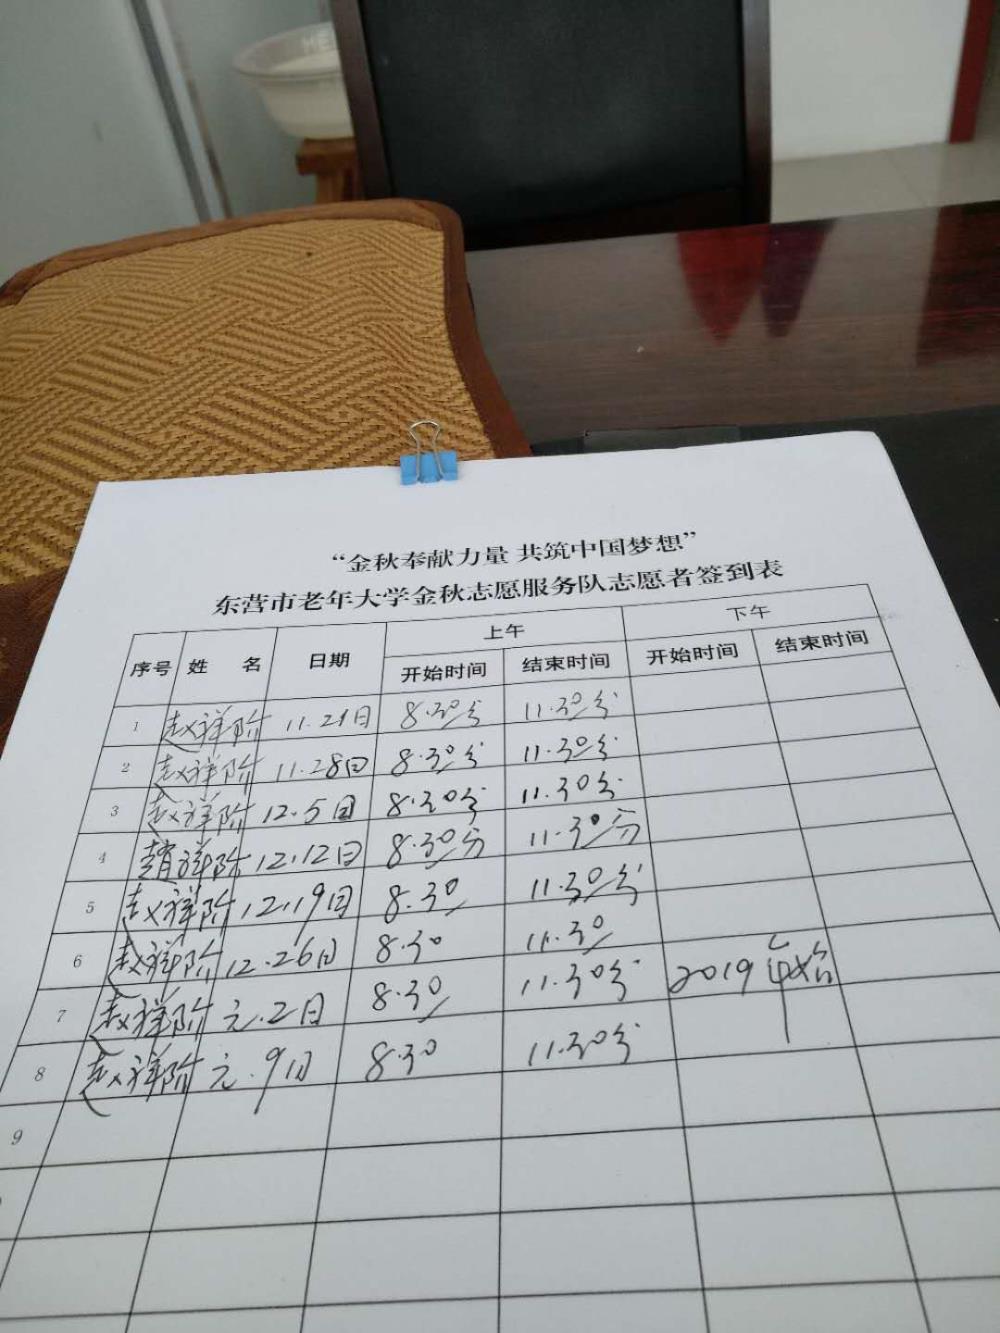 “金秋奉献力量 共筑中国梦想”
东营市老年大学金秋志愿服务队志愿者签到表
序号 姓 名 日期 上午 下午
开始时间 结束时间 开始时间 结束时间
1 赵祥阶 11.21日 8.30分 11.30分
2 赵祥阶 11.28日 8.30分 11.30分
3 赵祥阶 12.5日 8.30分 11.30分
4 趙祥阶 12.12日 8.30分 11.30分
5 赵祥阶 12.19日 8.30 11.30分
6 赵祥阶 12.26日 8.30 11.30
7 赵祥阶 元.2日 8.30 11.30分 2019年始
8 赵祥阶 元.9日 8.30 11.30分
9